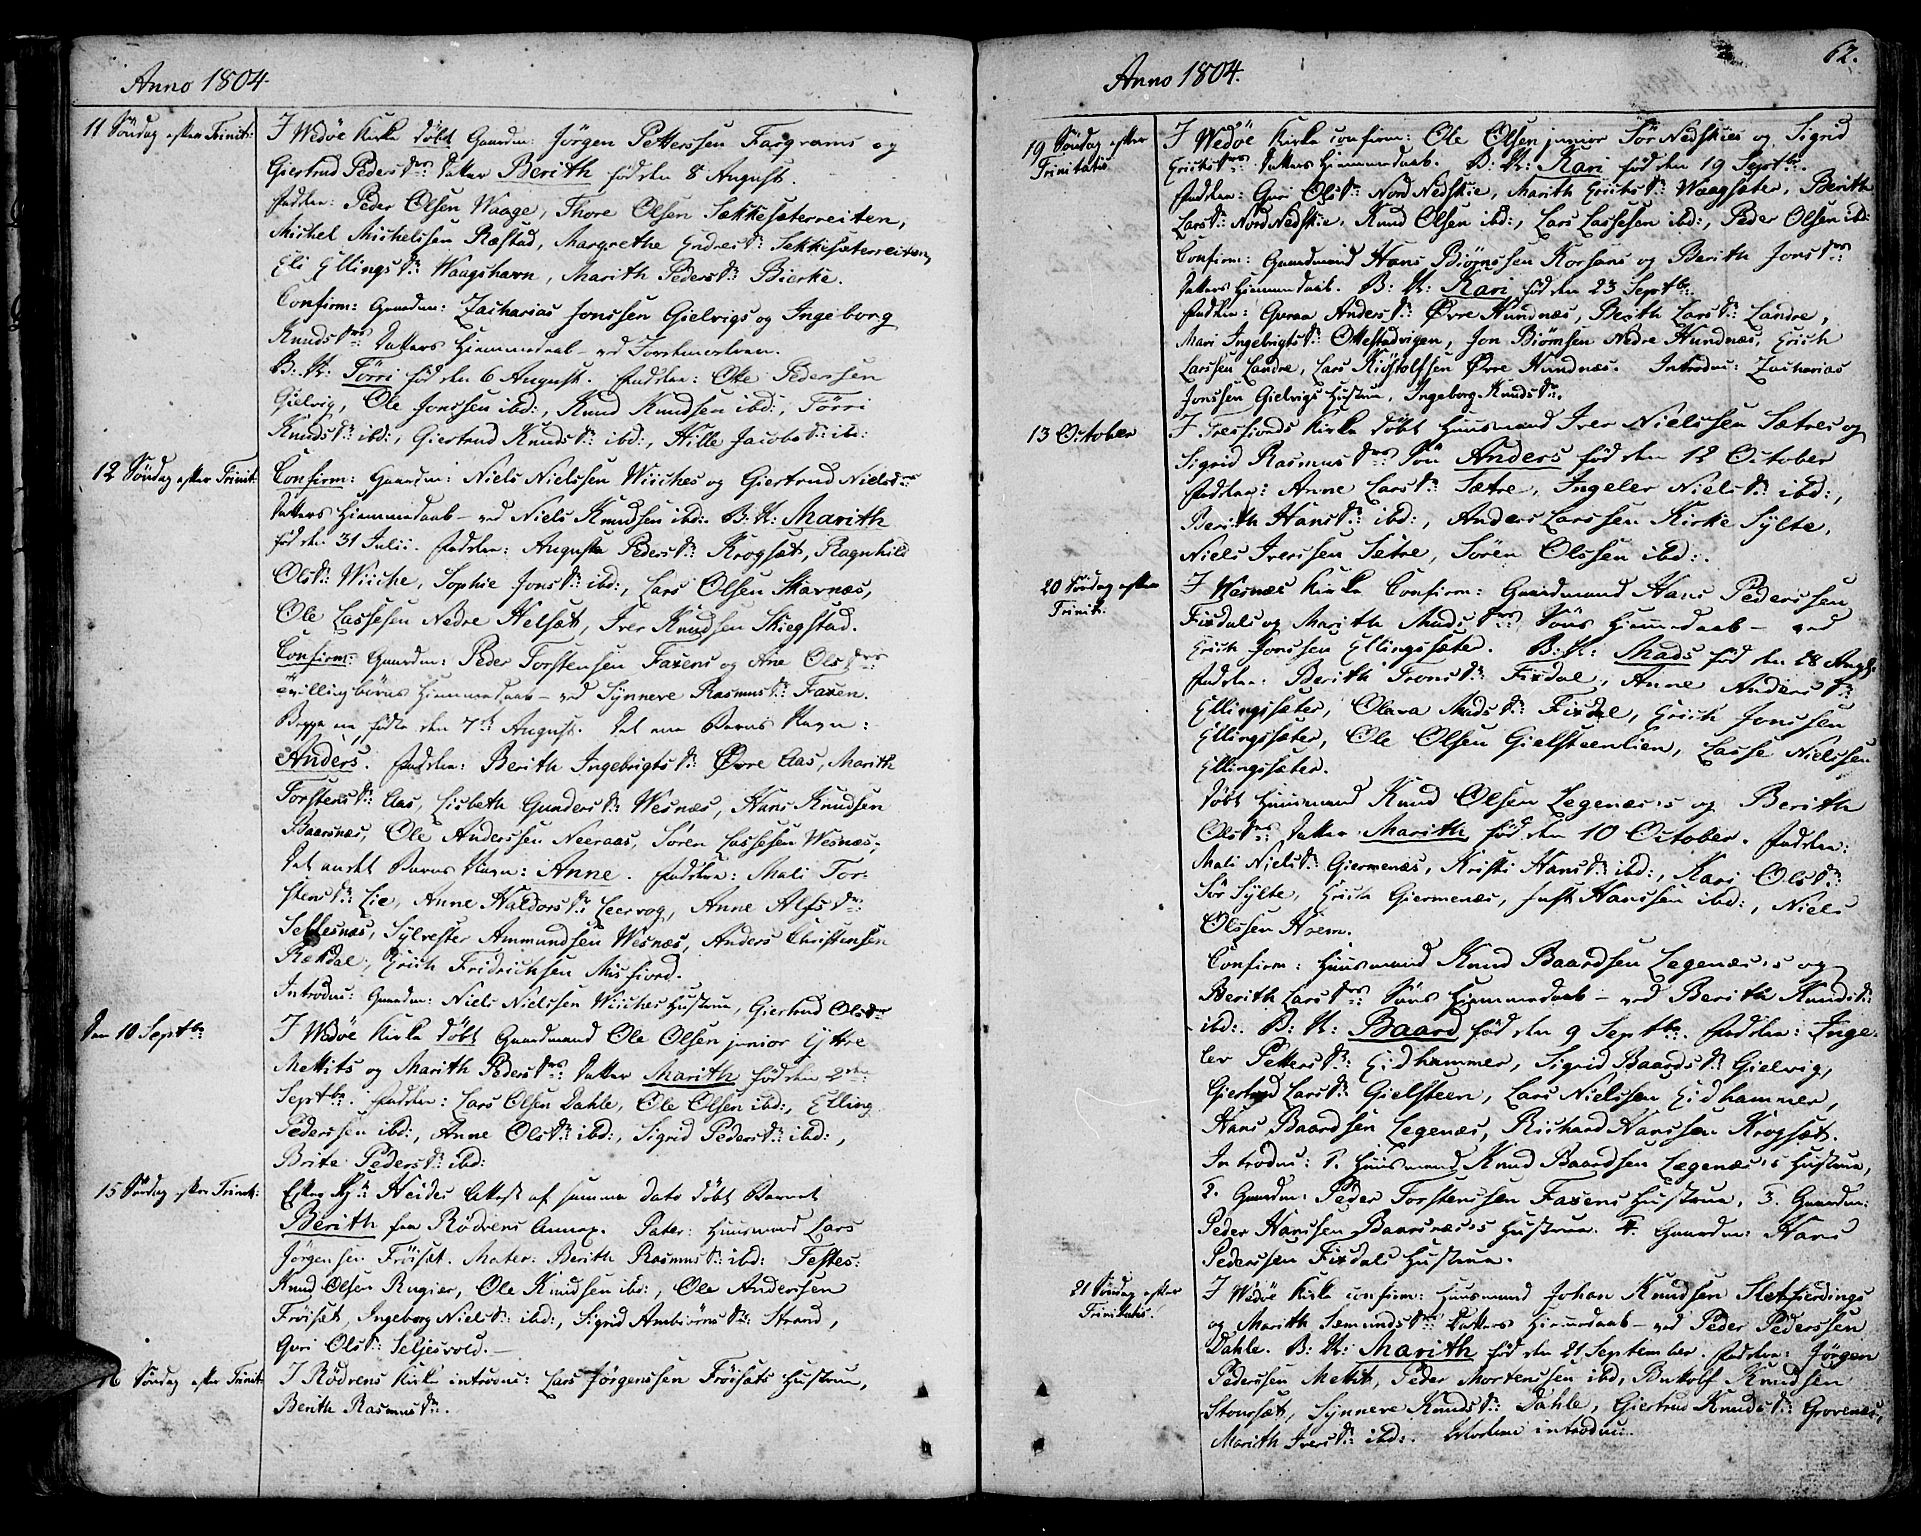 Anno 1804.
11 Söndag efter Trinit:
I Wedöe Kirke döbt Gaardm: Jörgen Pettersen Fargrams og
Giertrud Pedersdrs: Datter Berith fød den 8 August.
Faddere: Peder Olsen Waage, Thore Olsen Sækkesæterreiten,
Michel Michelssen Ræstad, Margrethe Endresdr: Sekkesæterreiten,
Eli Ellingsdr: Waagshavn, Marith Pedersdr: Bierke.
Confirm: Gaardm: Zacharias Jonssen Gielvigs og Ingeborg
Knudsdrs: Datters Hiemmedaab - ved Jordemoderen.
B. N: Törri fød den 6 August. Faddere: Ole Pedersen
Gielvig, Ole Jonssen ibd:, Knud Knudsen ibd:, Törri
Knudsdr: ibd:, Giertrud Knudsdr: ibd:, Hille Jacobsdr: ibd:
12 Söndag efter Trinit:
Confirm: Gaardm: Niels Nielssen Wiiches og Giertrud Nielsdrs
Datters Hiemmedaab - ved Niels Knudsen ibd:. B: N: Marith
fød den 31 Julii. Faddere: Augusta Pedersdr: Krogsæt, Ragnhild
Olsdr: Wiiche, Sophie Jonsdr: ibd:, Lars Olsen Skarnæs,
Ole Lassesen Nedre Helsæt, Iver Knudsen Skiegstad.
Confirm: Gaardm: Peder Torstensen Faxens og Ane Olsdrs:
Tvillingbørns Hiemmedaab - ved Synneve Rasmusdr: Faxen.
Begge ere fødte den 7de August. Det ene Barns Navn:
Anders. Faddere: Berith Ingebrigtsdr: Øvre Aas, Marith
Torstensdr: Aas, Lisbeth Gundersdr: Wesnæs, Hans Knudsen
Baarsnæs, Ole Anderssen Neeraas, Sören Lassesen Wesnæs.
Det andet Barns Navn: Anne. Faddere: Mali Tor-
stensdr: Lie, Anne Haldorsdr: Leervog, Anne Alfsdr:
Seltesnæs, Sylvester Ammundsen Wesnæs, Anders Christensen
Rækdal, Erich Fridrichsen Misfiord.
Introdu: Gaardm: Niels Nielssen Wiiches Hustrue, Giertrud Olsdr
Den 10 Septbr:
I Wedöe Kirke döbt Gaardmand Ole Olsen junior Yttre
Mettits og Marith Pedersdrs: Datter Marith fød den 2den
Septbr. Faddere: Lars Olsen Dahle, Ole Olsen ibd:, Elling
Pederssen ibd:, Anne Olsdr: ibd:, Sigrid Pedersdr: ibd:,
Brite Pedersdr: ibd:
15 Söndag efter Trinit:
Efter Hr: Heides Attest af samme dato döbt Barnet
Berith fra Rödvens Annex. Pater: Huusmand Lars
Jörgensen Fröisæt. Mater: Berith Rasmusdr: ibd: Testes:
Knud Olsen Rugier, Ole Knudsen ibd:, Ole Andersen
Fröisæt, Ingeborg Nielsdr: ibd:, Sigrid Ambiörnsdr: Strand,
Guri Olsdr: Seljesvold. -
16 Söndag efter Trinit:
I Rödvens Kirke introdu: Lars Jörgenssen Fröisæts Hustrue,
Berith Rasmusdr:.
62.
Anno 1804.
19 Söndag efter
Trinitatis
I Wedöe Kirke confirm: Ole Olsen junior Sör Nedskies og Sigrid
Erichsdrs: Datters Hiemmedaab. B. N: Kari fød den 19 Septbr:
Faddere: Guri Olsdr: Nord Nedskie, Marith Erichsdr: Waagsæter, Berith
Larsdr: Nord Nedskie, Knud Olsen ibd:, Lars Lassesen ibd:, Peder Olsen ibd:
Confirm: Gaardmand Hans Biørnssen Korsans og Berith Jonsdrs:
Datters Hiemmedaab. B: N: Kari fød den 23 Septbr:
Faddere: Andersdr: Øvre Hundnæs, Berith Larsdr: Landre,
Mari Ingebrigtsdr: Ottestadvigen, Jon Biørnsen Nedre Hundnæs, Erich
Larssen Landre, Lars Kiöstolfsen Øvre Hundnæs. Introdu: Zacharias
Jonssen Gielvigs Hustrue, Ingeborg Knudsdr:
13 October
I Tresfiords Kirke döbt Huusmand Iver Nielssen Sætres og
Sigrid Rasmusdrs: Sön Anders fød den 12 October
Faddere: Anne Larsdr: Sætre, Ingeler Nielsdr: ibd:,
Berith Hansdr: ibd:, Anders Larssen Kirke Sylte,
Niels Iverssen Sætre, Sören Olssen ibd:.
20 Söndag efter
Trinit:
I Wesnæs Kirke Confirm: Gaardmand Hans Pederssen
Fixdals og Marith Madsdrs: Söns Hiemmedaab - ved
Erich Jonssen Ellingssæter. B: N: Mads fød den 28 Augs:
Faddere: Berith Tronsdr: Fixdal, Anne Andersdr:
Ellingssæter, Olava Madsdr: Fixdal, Erich Jonssen
Ellingssæter, Ole Olsen Gielsteenlien, Lasse Nielssen
Ellingssæter.
Döbt Huusmand Knud Olsen Legenæs's og Berith
Olsdrs: Datter Marith fød den 10 October. Faddere:
Mali Nielsdr: Giermenæs, Kristi Hansdr: ibd:, Kari Olsdr:
Sör Sylte, Erich Giermenæs, Just Hanssen ibd:, Niels
Olssen Hoem.
Confirm: Huusmand Knud Baardsen Legenæs's og
Berith Larsdrs: Söns Hiemmedaab - ved Berith Knudsdr:
ibd:. B: N: Baard fød den 9 Septbr:. Faddere: Inge-
lev Pettersdr: Eidhammer, Sigrid Baardsdr: Gielvig,
Giertrud Larsdr: Gielsteen, Lars Nielssen Eidhammer,
Hans Baardsen Legenæs, Richard Hanssen Krogsæt.
Introdu: 1. Huusmand Knud Baardsen Legenæs's Hustrue,
2. Gaardm: Peder Torstenssen Faxens Hustrue, 3. Gaardm:
Peder Hanssen Baarsnæs's Hustrue. 4. Gaardm: Hans
Pederssen Fixdals Hustrue.
21 Söndag efter
Trinitatis.
I Wedöe Kirke confirm: Huusmand Johan Knudsen Sletfierdings
og Marith Semundsdr: Datters Hiemmedaab - ved Peder Pederssen
Dahle. B: N: Marith fød den 21 September. Faddere: Jörgen
Pederssen Metit, Peder Mortenssen ibd, Bottolf Knudsen
Stoursæt, Synneve Knudsdr: Dahle, Giertrud Knudsdr: Grovenæs,
Marith Iversdr: ibd:. Moderen introdu:.